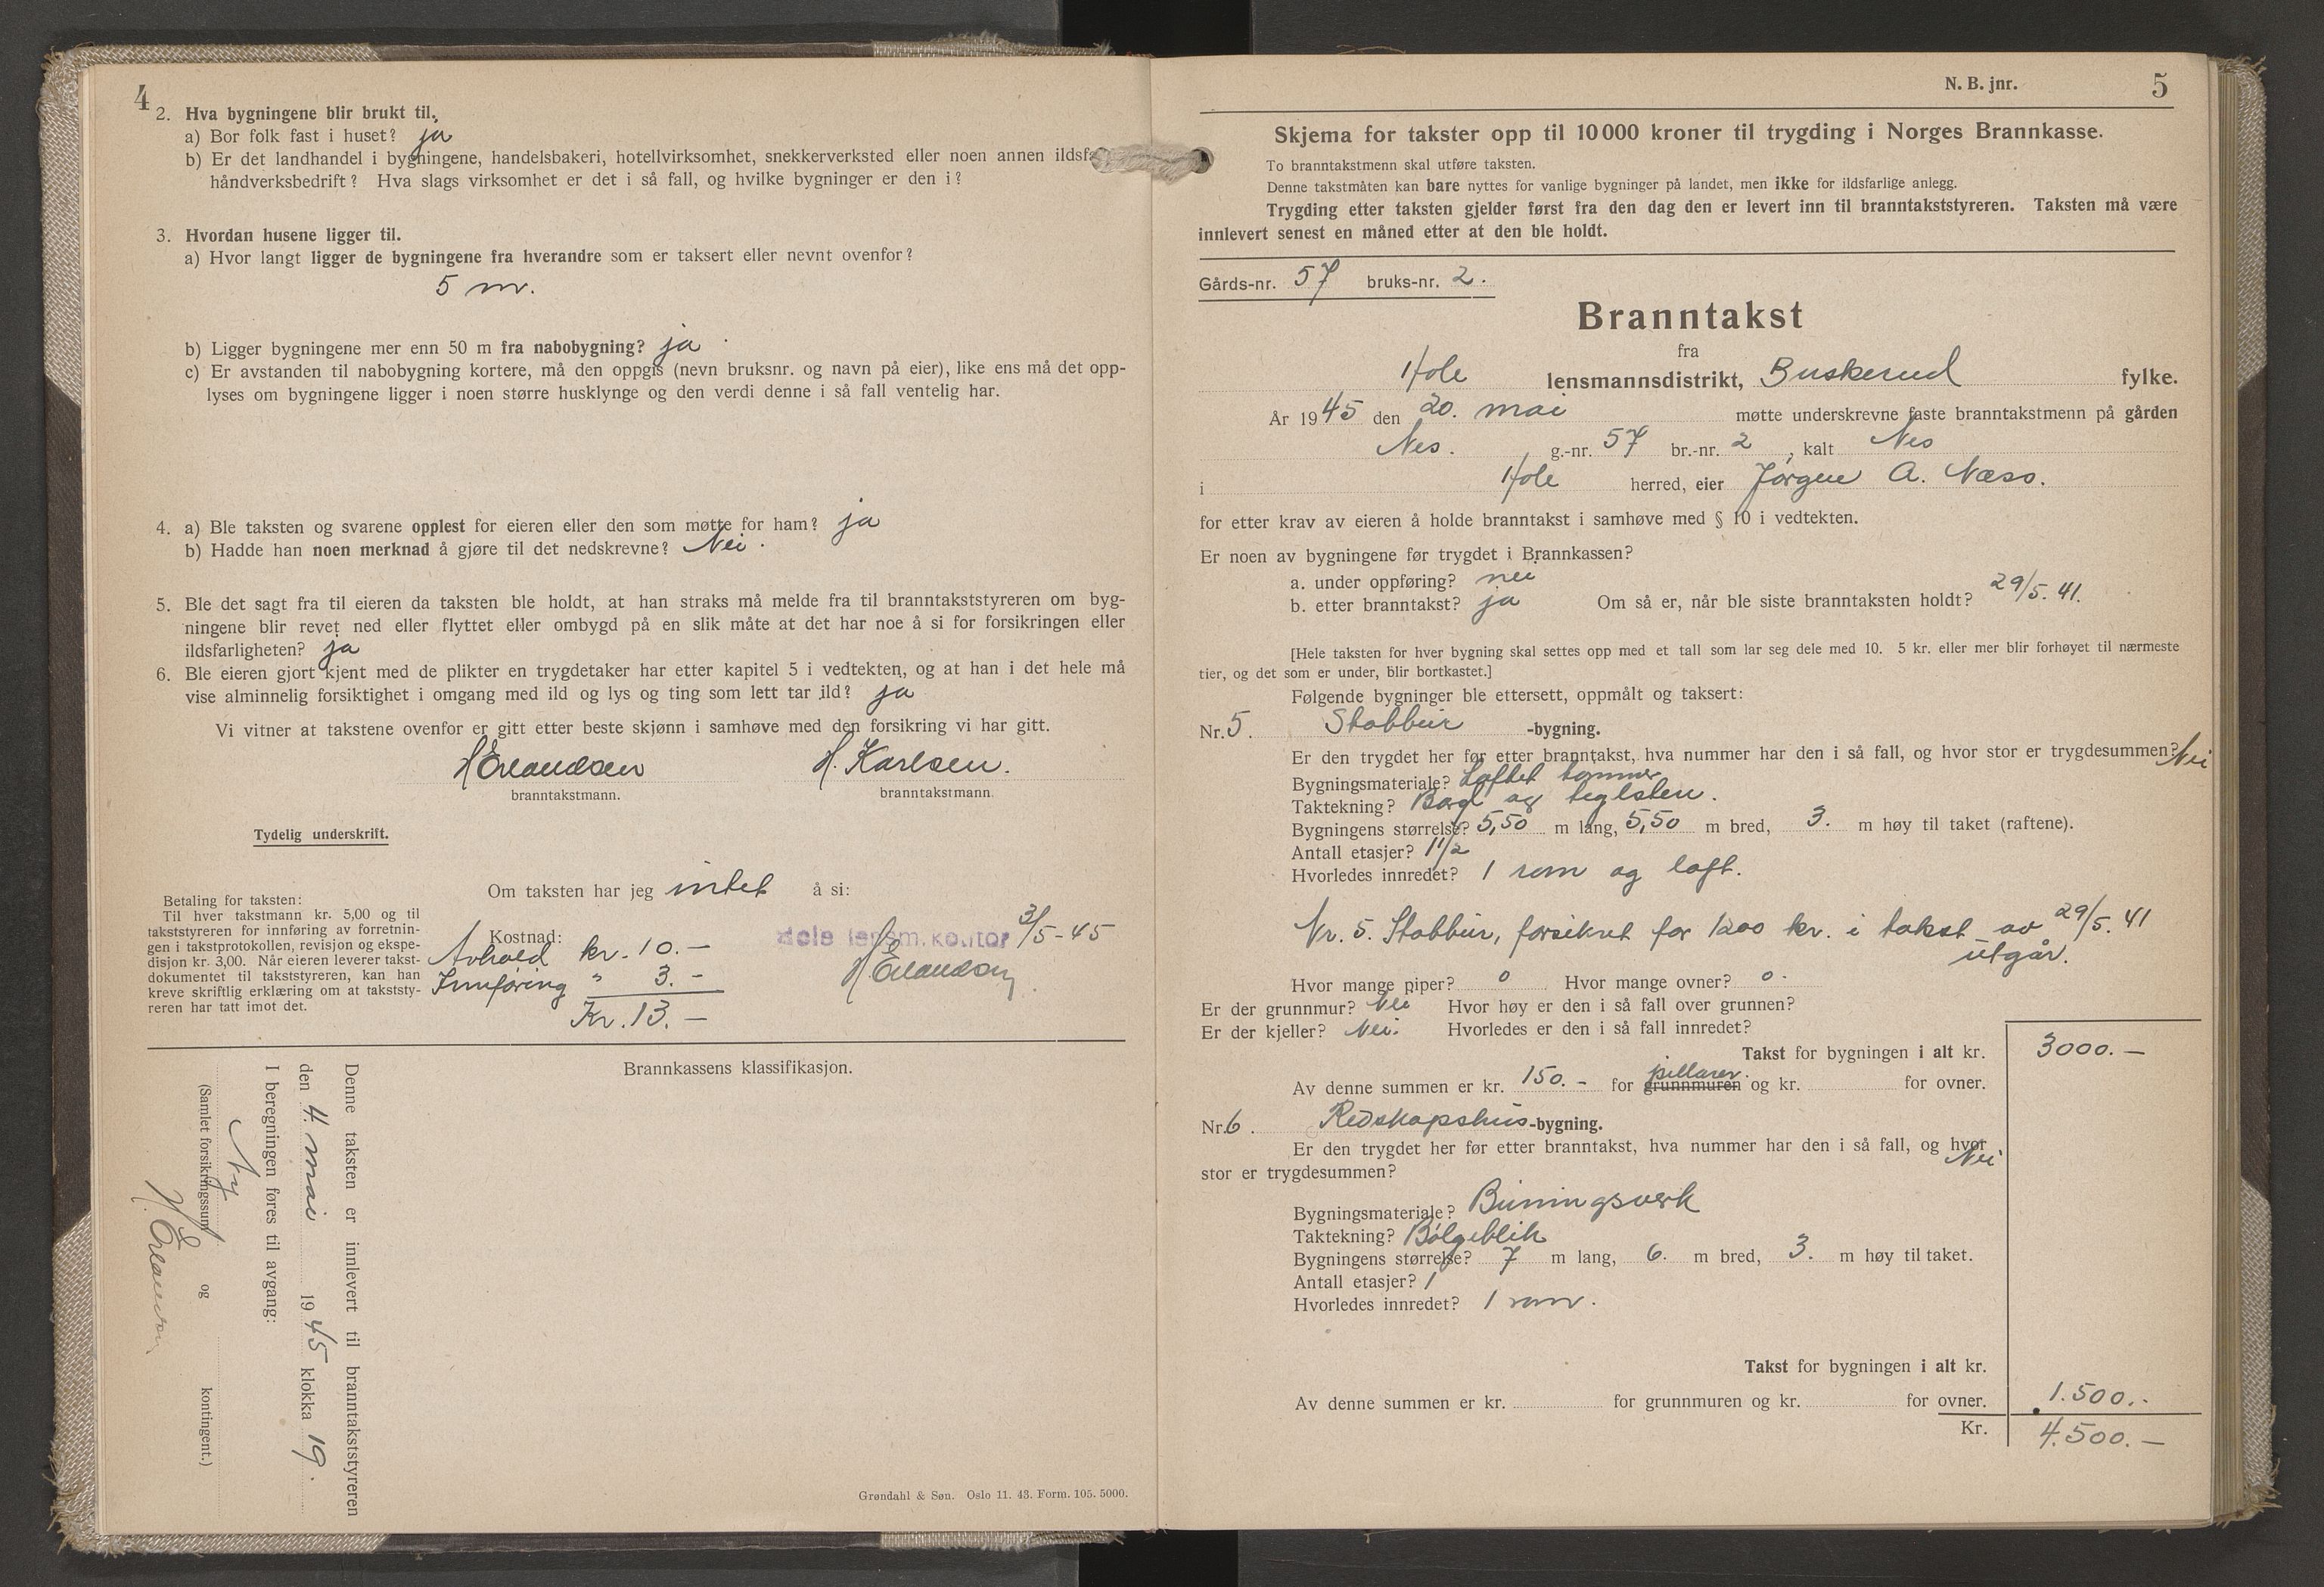 4
2. Hva bygningene blir brukt til.
a) Bor folk fast i huset? ja
b) Er det landhandel i bygningene, handelsbakeri, hotellvirksomhet, snekkerverksted eller noen annen ildsfa
håndverksbedrift? Hva slags virksomhet er det i så fall, og hvilke bygninger er den i?
3. Hvordan husene ligger til.
a) Hvor langt ligger de bygningene fra hverandre som er taksert eller nevnt ovenfor?
5 m.
b) Ligger bygningene mer enn 50 m fra nabobygning? ja
c) Er avstanden til nabobygning kortere, må den oppgis (nevn bruksnr. og navn på eier), like ens må det opp-
lyses om bygningene ligger i noen større husklynge og den verdi denne i så fall ventelig har.
4. a) Ble taksten og svarene opplest for eieren eller den som møtte for ham? ja
b) Hadde han noen merknad å gjøre til det nedskrevne? Nei.
5. Ble det sagt fra til eieren da taksten ble holdt, at han straks må melde fra til branntakststyreren om byg-
ningene blir revet ned eller flyttet eller ombygd på en slik måte at det har noe å si for forsikringen eller
ildsfarligheten? ja
6. Ble eieren gjort kjent med de plikter en trygdetaker har etter kapitel 5 i vedtekten, og at han i det hele må
vise alminnelig forsiktighet i omgang med ild og lys og ting som lett tar ild? ja
Vi vitner at takstene ovenfor er gitt etter beste skjønn i samhøve med den forsikring vi har gitt.
H Erlandsen H. Karlsen.
branntakstmann. branntakstmann.
Tydelig underskrift.
Om taksten har jeg intet å si:
Betaling for taksten:
Til hver takstmann kr. 5,00 og til
takststyreren for innføring av forretnin-
gen i takstprotokollen, revisjon og ekspe-
disjon kr. 3,00. Når eieren leverer takst-
dokumentet til takststyreren, kan han
kreve skriftlig erklæring om at takststy-
reren har tatt imot det.
Kostnad:
Avhold kr. 10.—
Innføring " 3.—
Kr. 13.—
Hole lensm.kontor 3/5-45
H Erlandsen
Brannkassens klassifikasjon.
Denne taksten er innlevert til branntakststyreren
den 4. mai 1945 klokka 19.
I beregningen føres til avgang:
Ny
(Samlet forsikringssum og kontingent.)
H. Erlandsen
Grøndahl & Søn. Oslo 11. 43. Form. 105. 5000.
N. B. jnr. 5
Skjema for takster opp til 10 000 kroner til trygding i Norges Brannkasse.
To branntakstmenn skal utføre taksten.
Denne takstmåten kan bare nyttes for vanlige bygninger på landet, men ikke for ildsfarlige anlegg.
Trygding etter taksten gjelder først fra den dag den er levert inn til branntakststyreren. Taksten må være
innlevert senest en måned etter at den ble holdt.
Gårds-nr. 57 bruks-nr. 2.
Branntakst
fra
Hole lensmannsdistrikt, Buskerud fylke.
År 1945 den 20. mai møtte underskrevne faste branntakstmenn på gården
Nes. g.-nr. 57 br.-nr. 2, kalt Nes
i Hole herred, eier Jørgen A. Næss.
for etter krav av eieren å holde branntakst i samhøve med § 10 i vedtekten.
Er noen av bygningene før trygdet i Brannkassen?
a. under oppføring? nei
b. etter branntakst? ja Om så er, når ble siste branntaksten holdt? 29/5. 41.
[Hele taksten for hver bygning skal settes opp med et tall som lar seg dele med 10. 5 kr. eller mer blir forhøyet til nærmeste
tier, og det som er under, blir bortkastet.]
Følgende bygninger ble ettersett, oppmålt og taksert:
Nr. 5. Stabbur -bygning.
Er den trygdet her før etter branntakst, hva nummer har den i så fall, og hvor stor er trygdesummen? Nei
Bygningsmateriale? Laftet tømmer
Taktekning? Bord og teglsten.
Bygningens størrelse? 5,50 m lang, 5,50 m bred, 3. m høy til taket (raftene).
Antall etasjer? 1 1/2
Hvorledes innredet? 1 rom og loft.
Nr. 5. Stabbur, forsikret for 1200 kr. i takst av 29/5. 41
utgår.
Hvor mange piper? 0 Hvor mange ovner? 0.
Er der grunnmur? Nei Hvor høy er den i så fall over grunnen?
Er der kjeller? Nei. Hvorledes er den i så fall innredet?
Takst for bygningen i alt kr. 3000.—
pillarer.
Av denne summen er kr. 150.- for grunnmuren og kr. for ovner.
Nr. 6. Redskapshus-bygning.
Er den trygdet her før etter branntakst, hva nummer har den i så fall, og hvor
stor er trygdesummen? Nei
Bygningsmateriale? Binningsverk
Taktekning? Bølgeblik
Bygningens størrelse? 7 m lang, 6. m bred, 3. m høy til taket.
Antall etasjer? 1
Hvorledes innredet? 1 rom.
Takst for bygningen i alt kr.
Av denne summen er kr. for grunnmuren og kr. for ovner. 1.500.-
Kr. 4.500.—